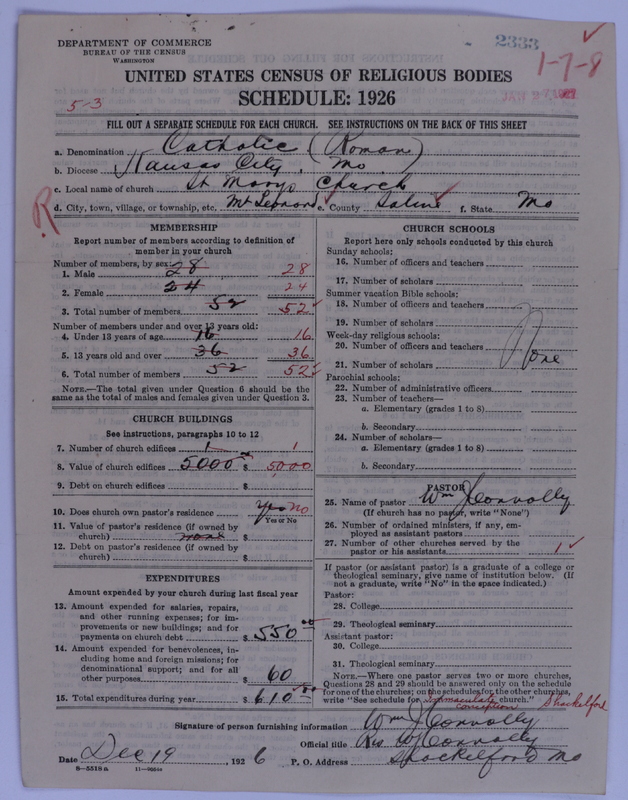 DEPARTMENT OF COMMERCE
BUREAU OF THE CENSUS
WASHINGTON
2333
1-7-8
UNITED STATES CENSUS OF RELIGIOUS BODIES
SCHEDULE: 1926
5-3
FILL OUT A SEPARATE SCHEDULE FOR EACH CHURCH. SEE INSTRUCTIONS ON THE BACK OF THIS SHEET
a. Denomination Catholic (Roman)
b. Diocese Kansas City, Mo
c. Local name of church St Marys Church
d. City, town, village, or township, etc. Mt Leonard e. County Saline f. State Mo
R
MEMBERSHIP
Report number of members according to definition of member in your church
Number of members, by sex:
1. Male 28 28
2. Female 24 24
3. Total number of members 52 52
Number of members under and over 13 years old:
4. Under 13 years of age 16 16
5. 13 years old and over 36 36
6. Total number of members 52 52
NOTE.—The total given under Question 6 should be the same as the total of males and females given under Question 3.
CHURCH BUILDINGS
See instructions, paragraphs 10 to 12
7. Number of church edifices 1 1
8. Value of church edifices 5000 00 $ 5000
9. Debt on church edifices $
10. Does church own pastor's residence yes No
Yes or No
11. Value of pastor's residence (if owned by church) none $
12. Debt on pastor's residence (if owned by church) $
EXPENDITURES
Amount expended by your church during last fiscal year
13. Amount expended for salaries, repairs, and other running expenses; for improvements or new buildings; and for payments on church debt $ 550 00
14. Amount expended for benevolences, including home and foreign missions; for denominational support; and for all other purposes $ 60
15. Total expenditures during year $ 610 00
CHURCH SCHOOLS
Report here only schools conducted by this church
Sunday schools:
16. Number of officers and teachers
17. Number of scholars
Summer vacation Bible schools:
18. Number of officers and teachers
19. Number of scholars
Week-day religious schools:
20. Number of officers and teachers
None
21. Number of scholars
Parochial schools:
22. Number of administrative officers
23. Number of teachers—
a. Elementary (grades 1 to 8)
b. Secondary
24. Number of scholars—
a. Elementary (grades 1 to 8)
b. Secondary
PASTOR
25. Name of pastor Wm J Connolly
(If church has no pastor, write "None")
26. Number of ordained ministers, if any, employed as assistant pastors
27. Number of other churches served by the pastor or his assistants 1
If pastor (or assistant pastor) is a graduate of a college or theological seminary, give name of institution below. (If not a graduate, write "No" in the space indicated.)
Pastor:
28. College
29. Theological seminary
Assistant pastor:
30. College
31. Theological seminary
NOTE.—Where one pastor serves two or more churches, Questions 28 and 29 should be answered only on the schedule for one of the churches; on the schedules for the other churches, write "See schedule for Immaculate Conception church." Shackelford
Signature of person furnishing information Wm J Connolly
Official title Rev W J Connolly
Date Dec 19, 1926 P. O. Address Shackelford Mo
8—5518 a